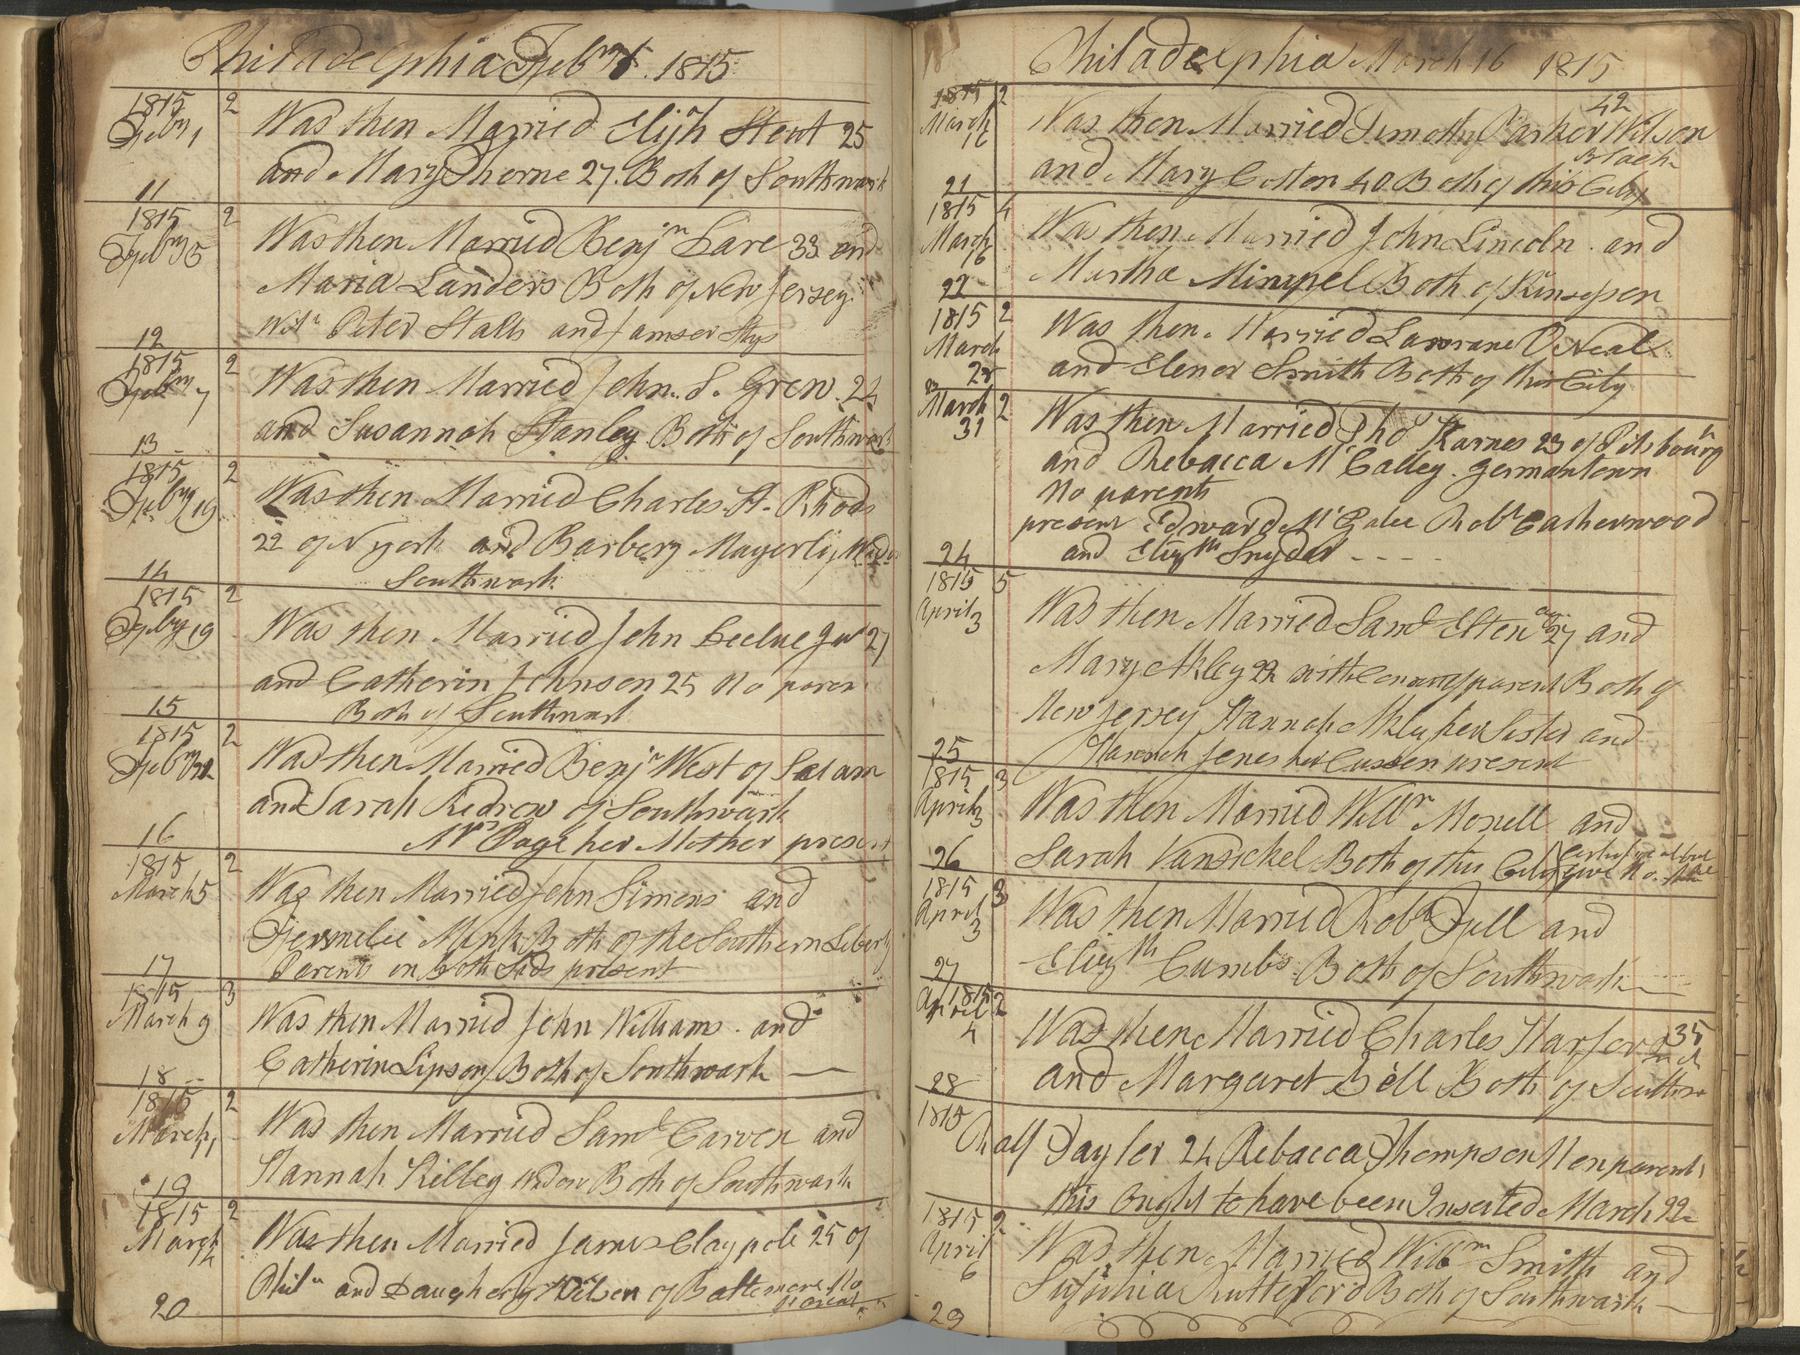 Philadelphia Feb 1815
1815 2
Feby 1
Was then Married Elijh Stout 25
and Mary Thorne 27. Both of Southwark
11
1815 2
Feby 5
Was then Married Benjn Lare 33 and
Maria Landers Both of New Jersey
Witn Peter Stalls and
12
1815 2
Feby 7
Was then Married John. S. Grew 24
and Susannah Stanley Both of Southwark
13
1815 2
Feby 19
Was then Married Charles H. Rhods
22 of N york and Barbery
Southwark
14
1815 2
Feby 19
Was then Married John 27
and Catherin Johnson 25 No paren
Both of Southwark
15
1815 2
Feby
Was then Married Benjn West of Salam
and Sarah Redrow of Southwark
Mrs Page her Mother present
16
1815 2
March 5
Was then Married John Simons and
Mink Both of the Southern Liberty
Parents on both Sids present
17
1815 3
March 9
Was then Married John Williams and
Catherin Lipson Both of Southwark
18
1815 2
March
Was then Married Saml Carven and
Hannah Killey Widow Both of Southwark
19
1815 2
March
Was then Married James Claypole 25 of
and Wilson of Baltemore No
parent
20
Philadelphia March 16 1815
1815 2
March
16
42
Was then Married Timothy Parker Wilson
Black
and Mary Coston 40 Both of this City
21
1815 4
March
Was then Married John Lincoln and
Martha Mimpel Both of
22
1815 2
March
Was then Married O Neal
and Elenor Smith Both of this City
23
March 2
31
Was then Married Tho Karnes 23 of Pitsbourg
and Rebacca McCalley. germantown
No parents
present Edward Robt Catherwood
and Elizth Snyder
24
1815 5
April 3
Was then Married Saml Elten age 27 and
Mary Akley 22 with Consent of parent Both of
New Jersey Hannah Akley her Sister and
Hannah Jones her Cussen present
25
1815 3
April 3
Was then Married Willm Morrell and
Sarah Vansickel Both of this City
26
1815 3
April
3
Was then Married Robt Tull and
Elizth Cumbs Both of Southwark
27
1815 2
April
4
Was then Married Charles Harford 35
and Margaret Bell Both of Southw
28
1815
Ralf Tayler 24 Rebacca Thompson Non parents
this Ought to have been Inserted March 22
1815 2
April
6
Was then Married Willm Smith and
Rutterford Both of Southwark
29